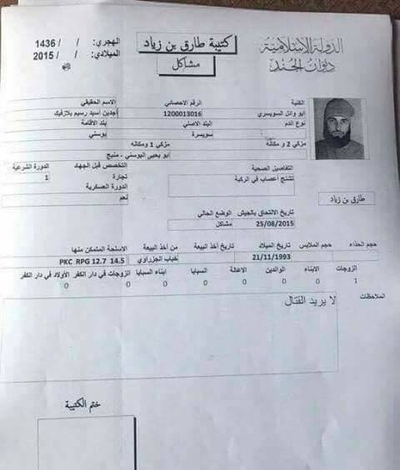 الدولة الإسلامية
ديوان الجند
كتيبة طارق بن زياد
مشاكل
الهجري: / / 1436
الميلادي: / / 2015
الكنية
الرقم الاحصائي
الاسم الحقيقي
ابو وائل السويسري
1200013016
نوع الدم
البلد الاصلي
بلد الاقامة
سويسرة
بوسني
مزكي 2 و مكانه
مزكي 1 ومكانه
ابو يحيى البوسني - منبج
التفاصيل الصحية
التخصص قبل الجهاد
الدورة الشرعية
تشنج أعصاب في الركبة
تجارة
1
الدورة العسكرية
نعم
طارق بن زياد
تاريخ الالتحاق بالجيش
الوضع الحالي
25/08/2015
مشاكل
حجم الحذاء
حجم الملابس
تاريخ الميلاد
تاريخ أخذ البيعة
من أخذ البيعة
الاسلحة المتمكن منها
21/11/1993
خباب الجزراوي
PKC RPG 12.7 14.5
الزوجات
الابناء
الوالدين
الاعالة
السبايا
ابناء السبايا
الزوجات في دار الكفر
الأولاد في دار الكفر
1 0 0 0 0 0 0 0
الملاحظات
لا يريد القتال
ختم الكتيبة